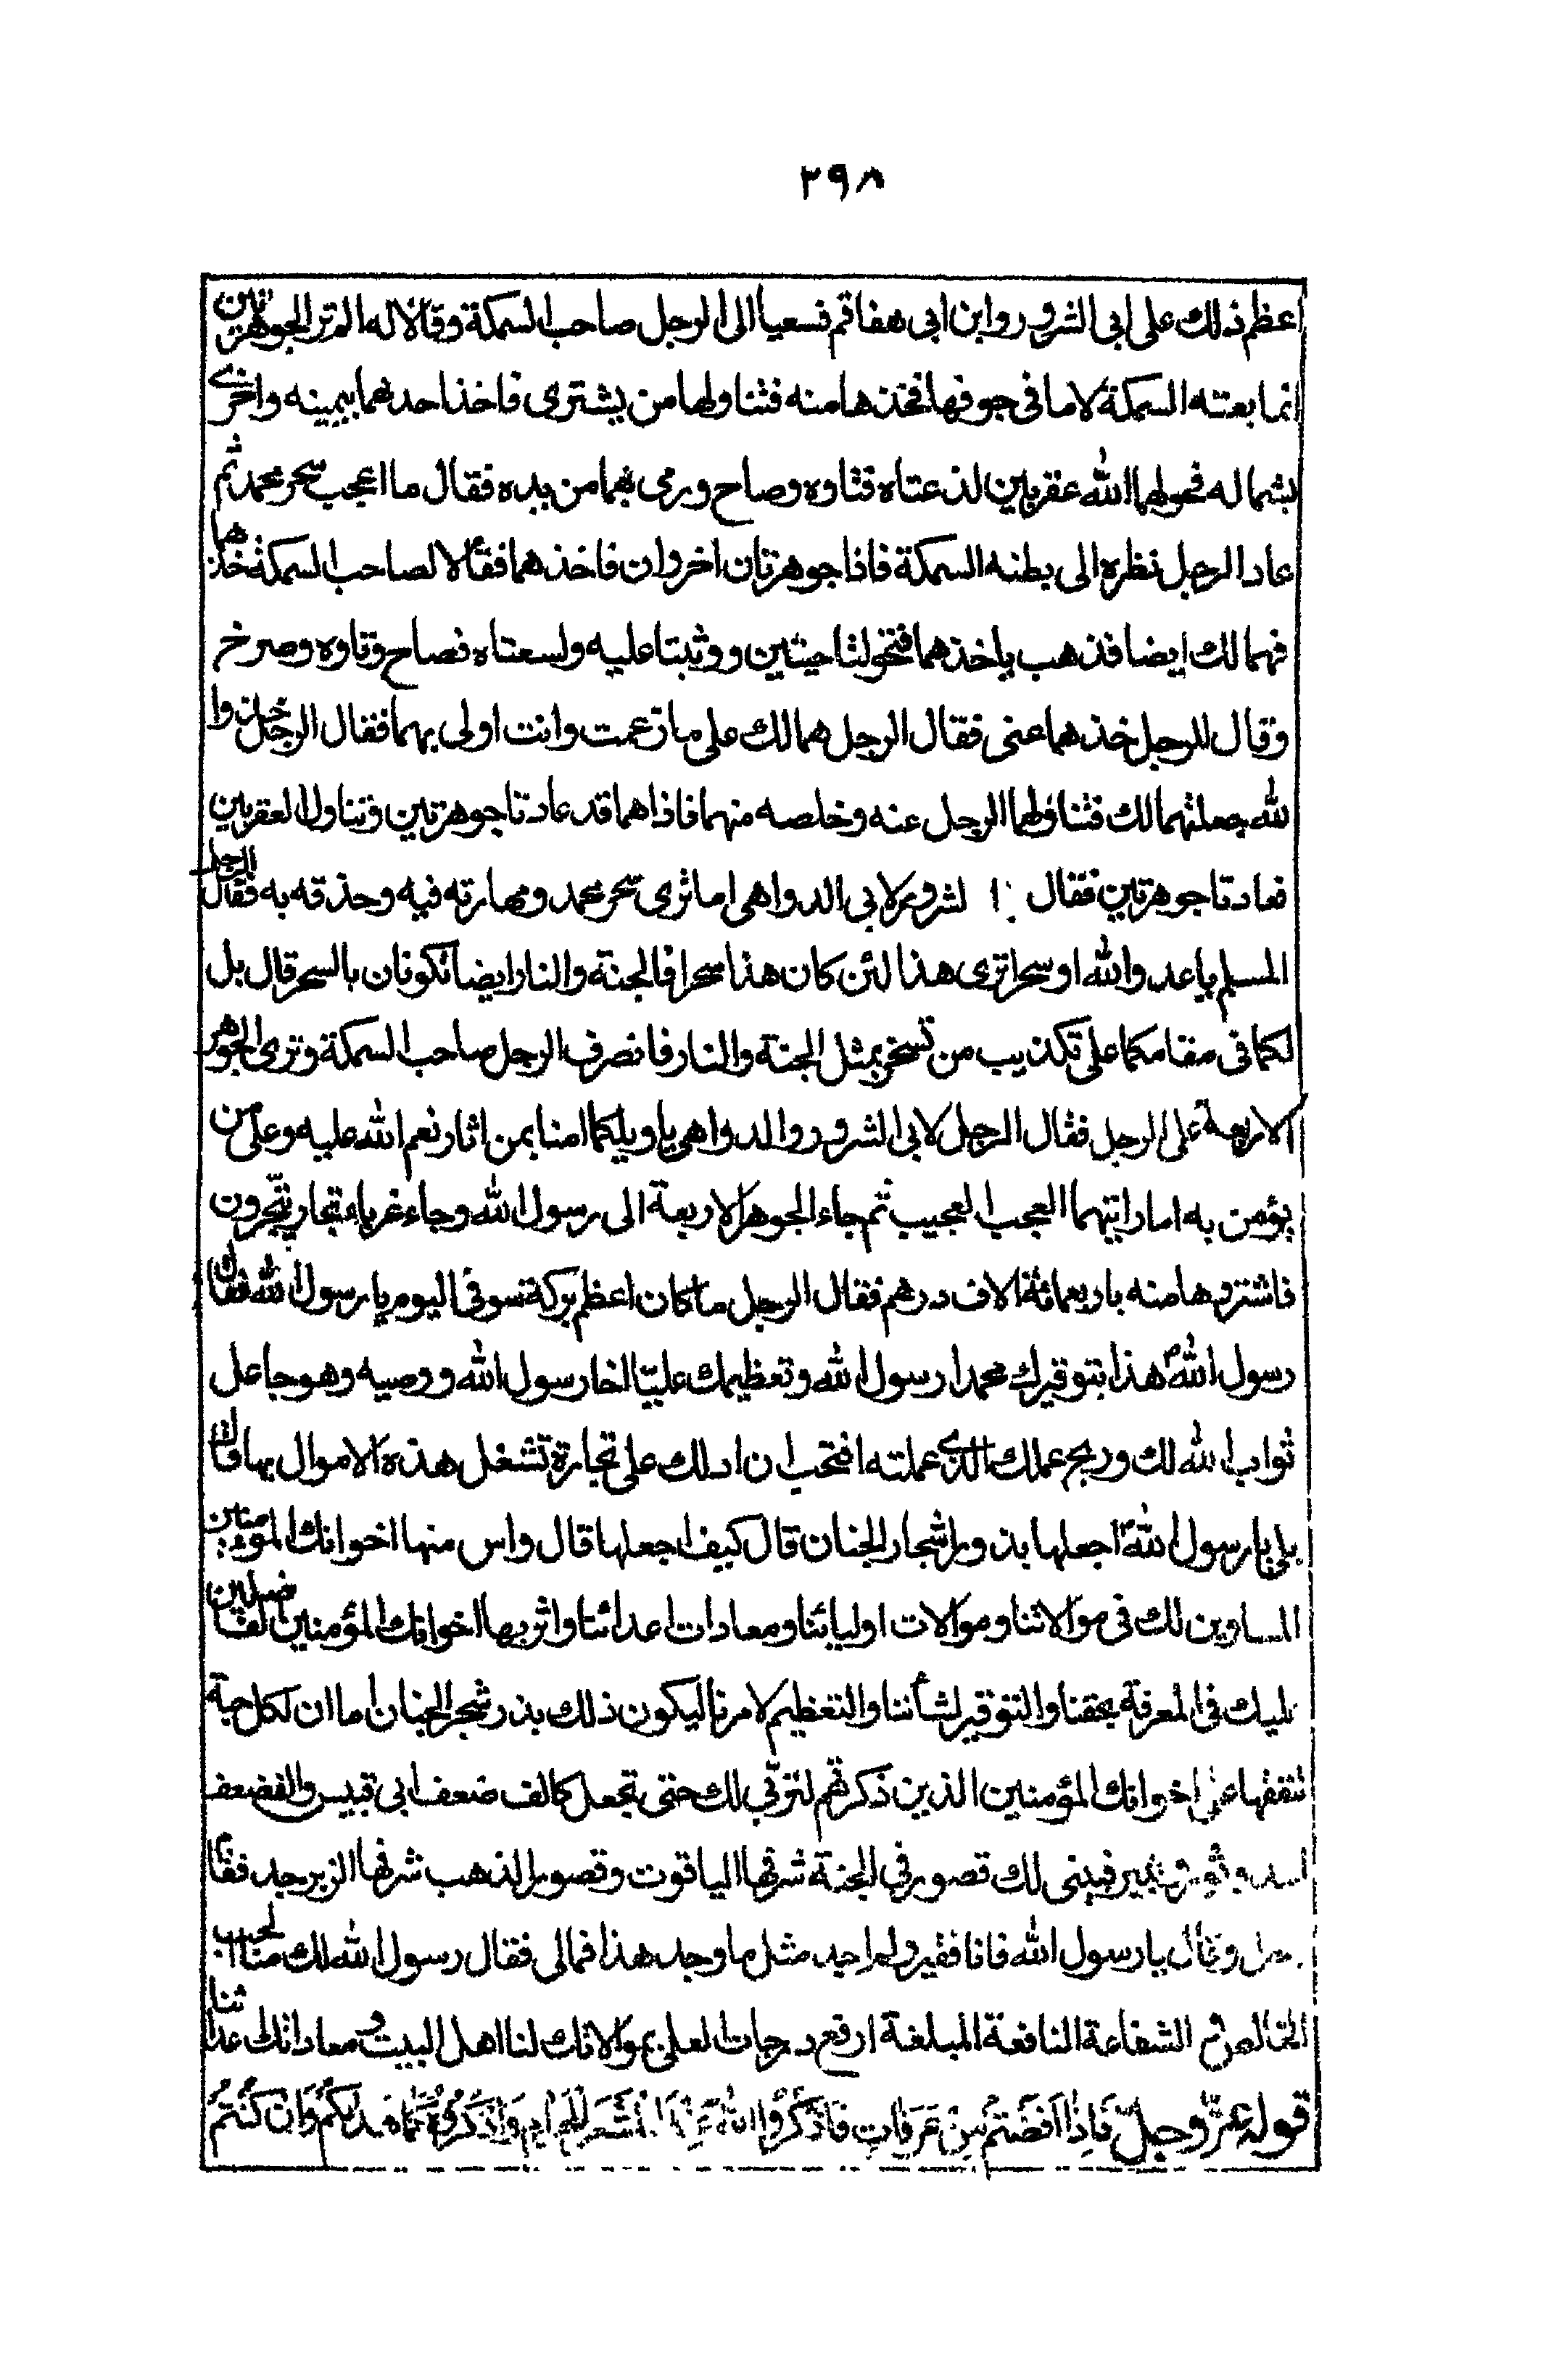 ٢٩٨
اعظم ذلك على ابى الشرور وابن ابى هفاقم فسعيا الى الرجل صاحب السمكة وقالا له الم تر الجوهرتين
انما بعته السمكة لا ما فى جوفها فخذها منه فتناولها من يشترى فاخذ احدهما بيمينه واخرى
بشماله فحولهما الله عقربين لذعتاه فتاوه وصاح ورمى بهما من يده فقال ما اعجب سحر محمد ثم
عاد الرجل نظره الى بطنه السمكة فاذا جوهرتان اخروان فاخذهما فقالا لصاحب السمكة خذها
فهما لك ايضا فذهب ياخذهما فتحولتا حيتين ووثبتا عليه ولسعتاه فصاح وتاوه وصرخ
وقال للرجل خذهما عنى فقال الرجل هما لك على ما زعمت وانت اولى بهما فقال الرجل خذ وا
لله جعلتهما لك فتناولهما الرجل عنه وخلصه منهما فاذا هما قد عادتا جوهرتين وتناول العقربين
فعادتا جوهرتين فقال ا لشرور لابى الدواهى اما ترى سحر محمد ومهارته فيه وحذقه به فقال الرجل
المسلم يا عدو الله او سحرا ترى هذا لئن كان هذا سحرا فالجنة والنار ايضا تكونان بالسحر قال بل
لكما فى مقامكما على تكذيب من تسخر بمثل الجنة والنار فانصرف الرجل صاحب السمكة وترى الجوهر
الاربعة على الرجل فقال الرجل لابى الشرور والدواهى يا ويلكما امنا بمن اثار نعم الله عليه وعلى من
يؤمن به اما رايتهما العجب العجيب ثم جاء الجوهر الاربعة الى رسول الله وجاء غرباء تجار يتجرون
فاشتروها منه باربعمائة الاف درهم فقال الرجل ما كان اعظم بركة سوقى اليوم يا رسول الله فقال
رسول الله ص هذا بتوقيرك محمدا رسول الله وتعظيمك عليّا اخا رسول الله ووصيه وهو جاعل
ثواب الله لك وربح عملك الذى عملته افتحب ان ادلك على تجارة تشغل هذه الاموال بها قال
بلى يا رسول الله ص اجعلها بذور اشجار الجنان قال كيف اجعلها قال واس منها اخوانك المؤمنين
المساوين لك فى موالاتنا وموالات اوليائنا ومعادات اعدائنا واثر بها اخوانك المؤمنين الفاضلين
عليك فى المعرفة بحقنا والتوقير لشأننا والتعظيم لامرنا ليكون ذلك بذر شجر الجنان اما ان لكل حبة
تنفقها على اخوانك المؤمنين الذين ذكرتهم لتربّى لك حتى تجعل كالف ضعف ابى قبيس والف ضعف
احد وثور وثبير فيبنى لك قصور فى الجنة شرفها الياقوت وقصور الذهب شرفها الزبرجد فقام
رجل وقال يا رسول الله فانا فقير ولم احد مثل ما وجد هذا فمالى فقال رسول الله لك منا الحب
الخالص و الشفاعة النافعة المبلغة ارفع درجات لعلى بموالاتك لنا اهل البيت ومعاداتك اعدائنا
قوله عزّ وجلّ فَاِذٰا اَفَضْتُمْ مِنْ عَرَفَاتٍ فَاذْكُرُوا اللهَ عِنْدَ الْمَشْعَرِ الْحَرَامِ وَاذْكُرُوهُ كَمَا هَدٰيكُمْ وَاِنْ كُنْتُمْ